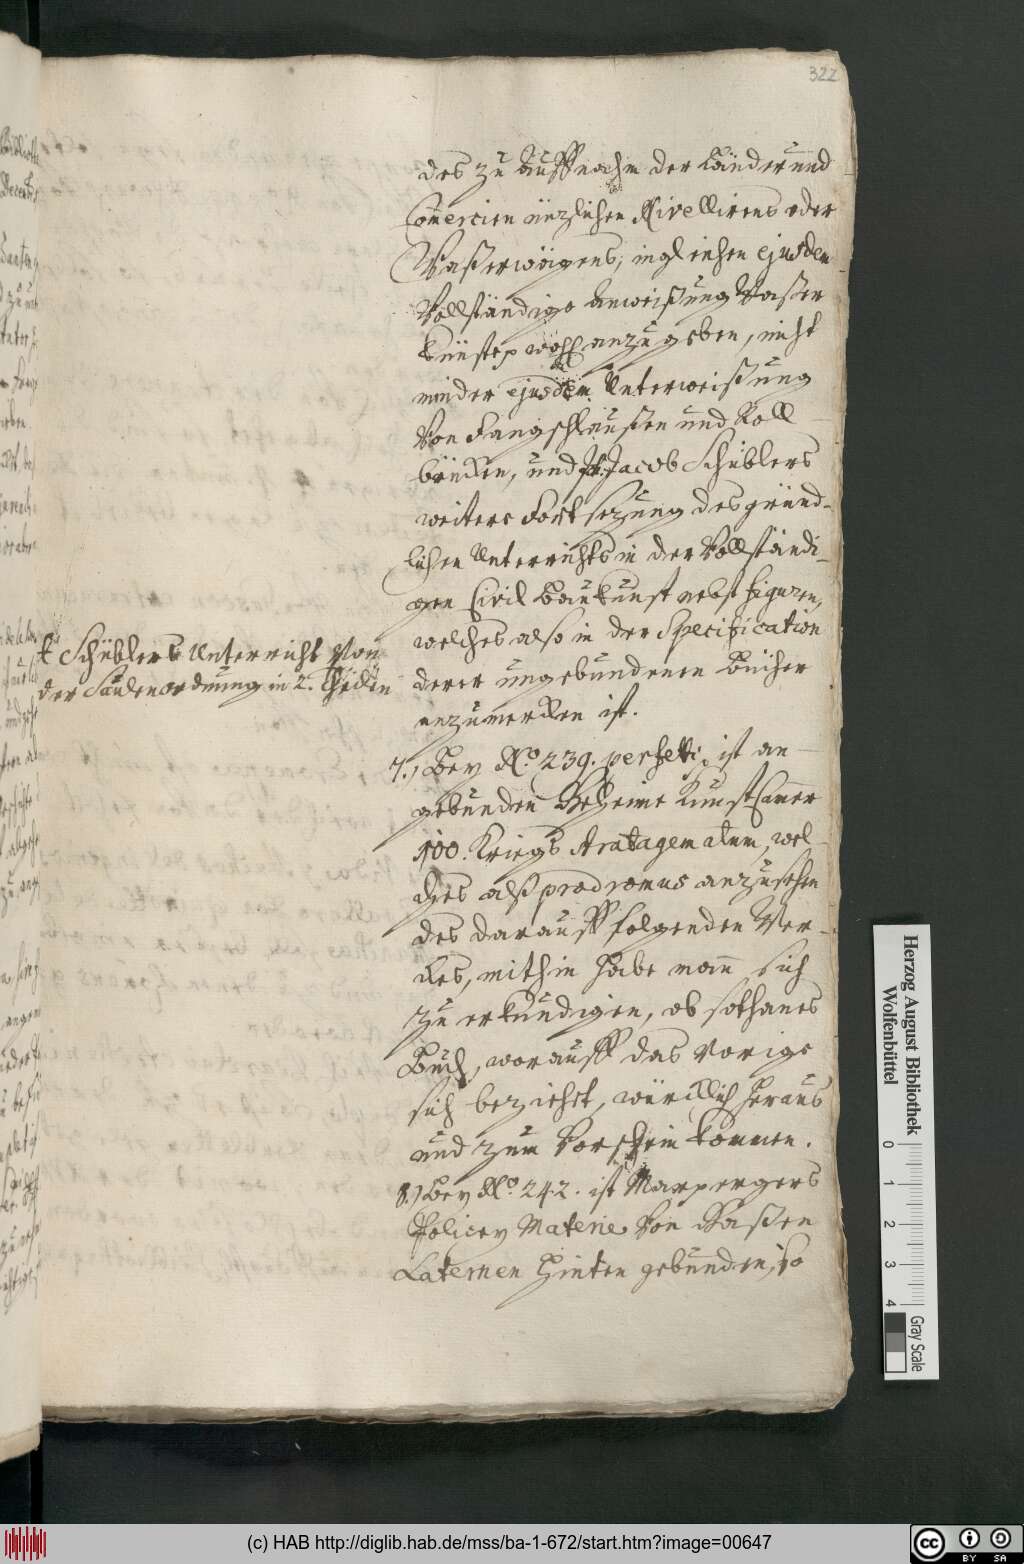 322
des zu Auffnahm der Länder und
Comercien nüzlichen Nivellirens oder
Waßerwägens, ingleichen ejusdem
Vollständige Anweißung Waßer
künste wohl anzugeben, nicht
minder ejusdem Unterweißung
Von Fangschleußen und Roll
brücken, und Jacob Schüblers
weitere Fortsezung des gründ-
lichen Unterrichts in der Vollständi-
gen Civil Baukunst nebst figuren,
welches also in der Specification
derer ungebundenen Bücher
anzumerken ist.
Schüblers Unterricht Von
der Säulenordnung in 2. Theilen
7.) Bey No. 239. perfetti, ist an-
gebunden Geheime Kunst Camer
100. Kriegs Stratagematum, wel-
ches alß prodromus anzusehen
des darauff folgenden Wer-
kes, mithin habe mann sich
zu erkundigen, ob sothanes
Buch, worauff das vorige
sich beziehet, würcklich heraus
und zum Vorschein kommen.
8.) Bey No. 242. ist Marpergers
Policey Materie Von Gaßen
Laternen hinten gebunden, so
Herzog August Bibliothek
Wolfenbüttel
0 1 2 3 4
Gray Scale
(c) HAB http://diglib.hab.de/mss/ba-1-672/start.htm?image=00647
cc BY SA